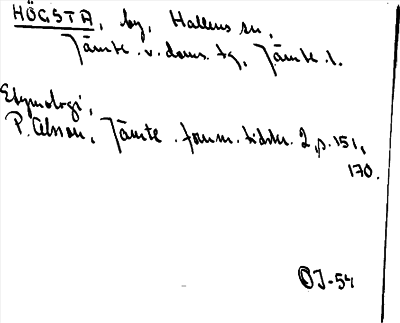 HÖGSTA, by, Hallens sn,
Jämtl. v. doms. tg, Jämtl. l.
Etymologi,
P. Olsson, Jämtl. fornm. tidskr. 2, s. 151,
170.
OJ-54